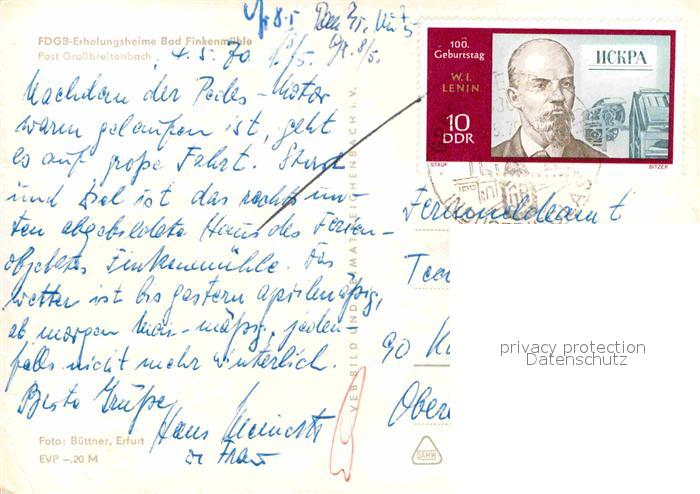 FDGB-Erholungsheime Bad Finkenmühle
Post Großbreitenbach
4.5.70
Nachdem der Pedes-Motor
warm gelaufen ist, geht
es auf große Fahrt. Start
und Ziel ist das rechts un-
ten abgebildete Haus des Ferien-
objektes Finkenmühle. Das
Wetter ist bis gestern aprilmäßig,
ab morgen mai-mäßig, jeden-
falls nicht mehr winterlich.
Beste Grüße
Hans
u. Frau
Foto: Büttner, Erfurt
EVP -,20 M
VEB BILD UND HEIMAT REICHENBACH i. V.
100.
Geburtstag
W. I.
LENIN
ИСКРА
10
DDR
STAUF
BITZER
Fernmeldeamt
90
privacy protection
Datenschutz